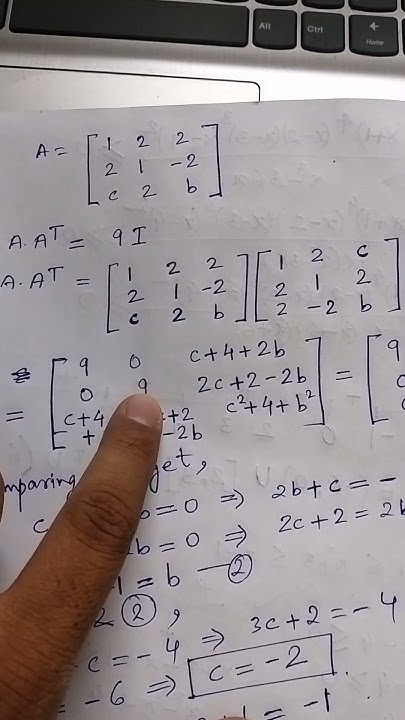 Alt Ctrl Home
A = [ 1 2 2
2 1 -2
c 2 b ]
A.Aᵀ = 9I
A.Aᵀ = [ 1 2 2 ] [ 1 2 c ]
2 1 -2 2 1 2
c 2 b 2 -2 b
= [ 9 0 c+4+2b ] = [ 9
0 9 2c+2-2b
c+4 +2 c²+4+b²
+ -2b
mparing get,
c b=0 ⇒ 2b+c = -
2b=0 ⇒ 2c+2 = 2b
1 = b — ②
②,
c = -4 ⇒ 3c+2 = -4
= -6 ⇒ c = -2
= -1